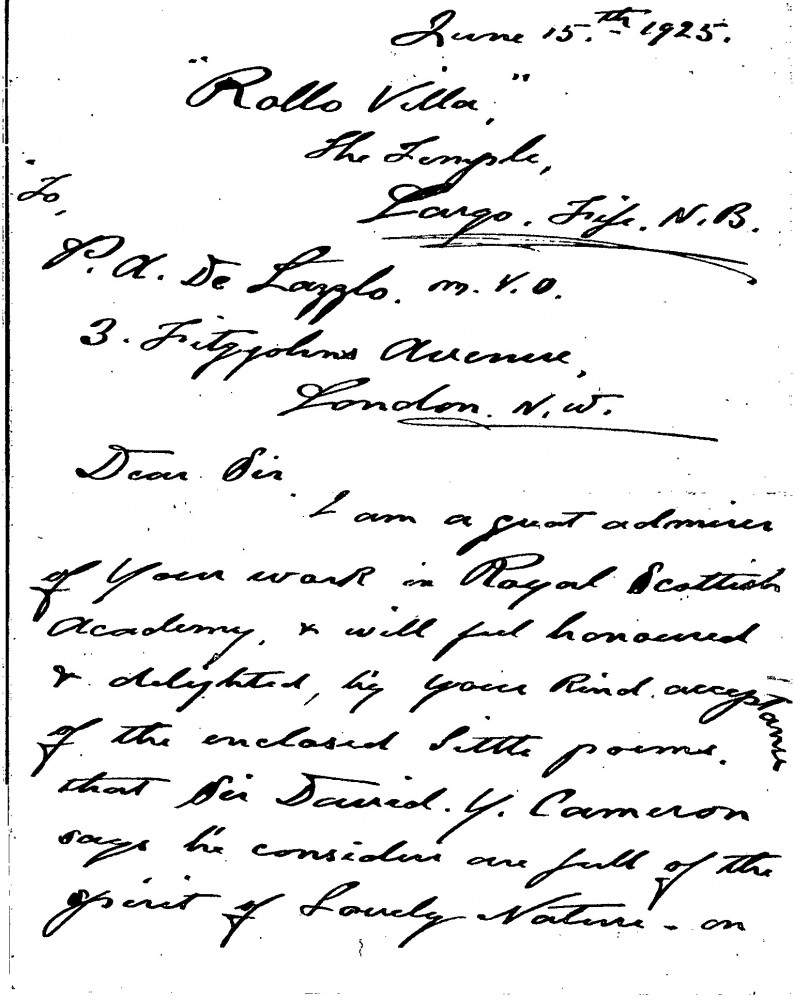 June 15.th 1925.
"Rollo Villa,"
The Temple,
Largo. Fife. N.B.
"To,
P. A. De Lazzlo. M.V.O.
3. Fitzjohns Avenue,
London. N.W.
Dear Sir
I am a great admirer
of your work in Royal Scottish
Academy, & will feel honoured
& delighted, by your kind acceptance
of the enclosed little poems.
that Sir David. Y. Cameron
says he considers are full of the
spirit of Lovely Nature - on